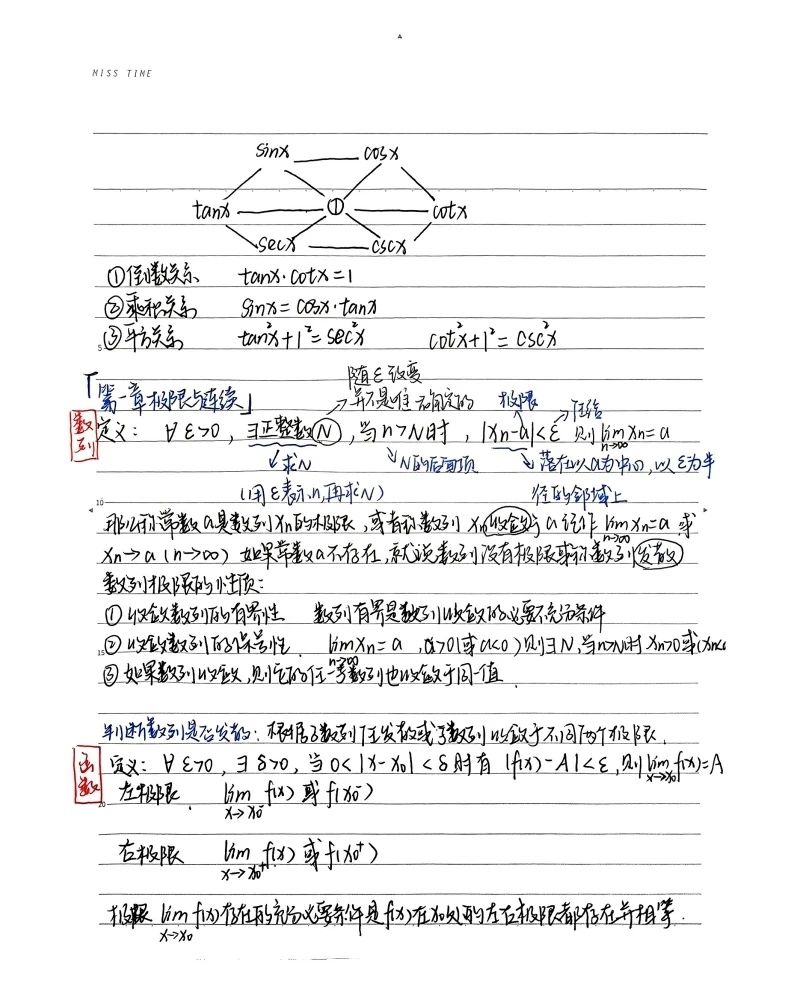 MISS TIME
sinx cosx
tanx ① cotx
secx cscx
①倒数关系 tanx·cotx=1
②乘积关系 sinx=cosx·tanx
5
③平方关系 tan²x+1²=sec²x cot²x+1²=csc²x
随ε改变
「第一章极限与连续」 并不是唯一确定的 极限 任给
数列 定义: ∀ε>0, ∃正整数N, 当n>N时, |xn-a|<ε 则 lim xn=a
n→∞
求N N的后面项 落在以a为中心,以ε为半
(用ε表示n,再求N) 径的邻域上
10
那么称常数a是数列xn的极限,或者称数列xn收敛于a 记作 lim xn=a 或
n→∞
xn→a(n→∞) 如果常数a不存在,就说数列没有极限或称数列发散
数列极限的性质:
①收敛数列的有界性 数列有界是数列收敛的必要不充分条件
②收敛数列的保号性. lim xn=a ,a>0(或a<0)则∃N,当n>N时 xn>0或(xn<
15
n→∞
③如果数列收敛,则它的任一子数列也收敛于同一值.
判断数列是否发散:根据子数列 发散或子数列收敛于不同两个极限.
函数 定义: ∀ε>0, ∃δ>0, 当0<|x-x0|<δ时有 |f(x)-A|<ε,则lim f(x)=A
x→x0
左极限. lim f(x) 或 f(x0⁻)
20
x→x0⁻
右极限 lim f(x) 或 f(x0⁺)
x→x0⁺
极限 lim f(x)存在的充分必要条件是f(x)在x0处的左右极限都存在并相等.
x→x0